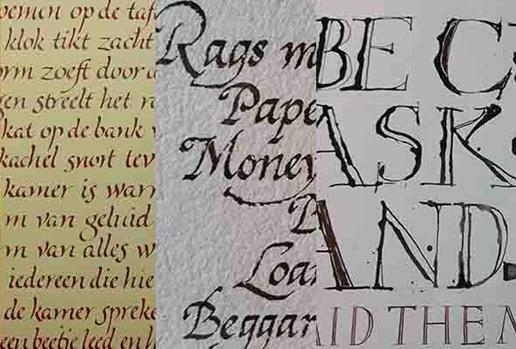 oemen op de taf
klok tikt zacht
rm zoeft door d
gen streelt het r
kat op de bank v
kachel snort tev
kamer is warm
m van geluid
m van alles w
iedereen die hie
de kamer spreke
een beetje leed en l
Rags m
Pape
Money
B
Loa
Beggar
BE C
ASK
AND
AID THE M